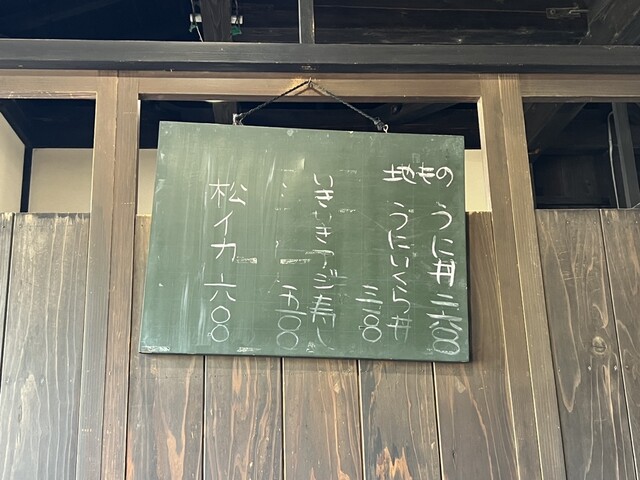 地もの
うに丼 二六〇〇
うにいくら丼
三一〇〇
いきいきアジ寿し
一五〇〇
松イカ 六〇〇